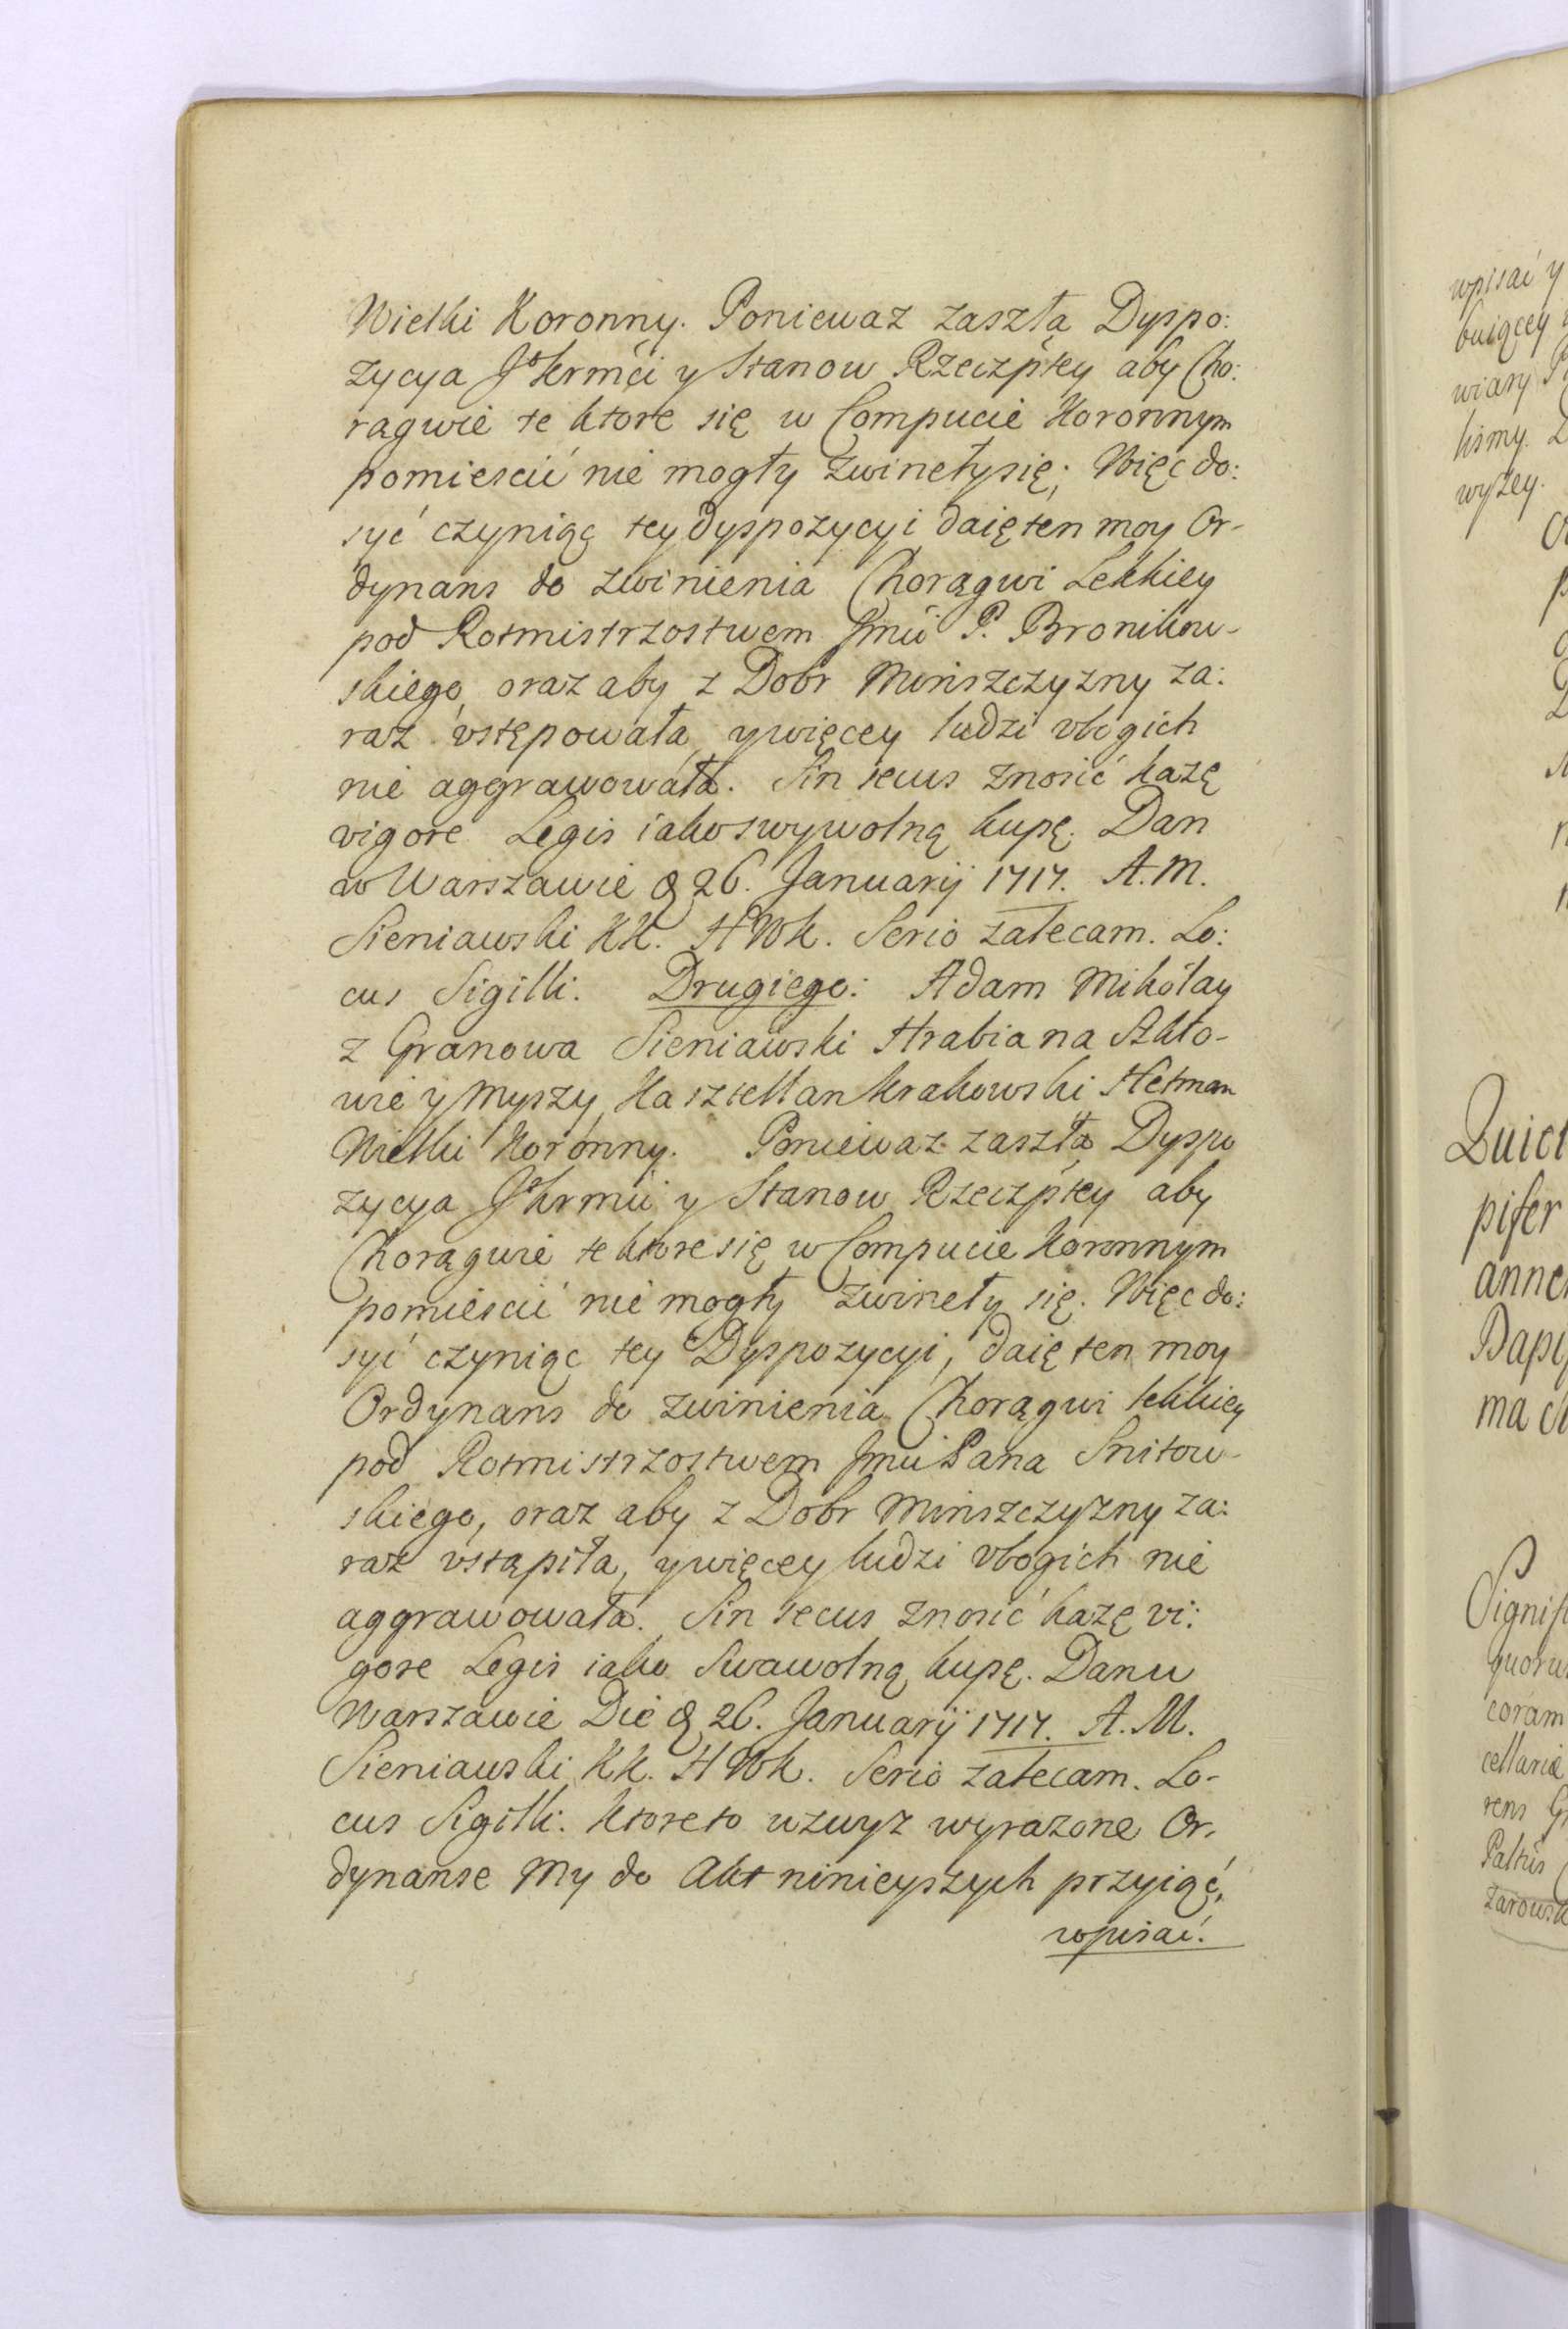 Wielki Koronny. Poniewaz zaszła Dyspo:
zycya JoKrmći y Stanow Rzeczpłey aby Cho:
rągwie te ktore się w Compucie Koronnym
pomiescić nie mogły zwineły się; Więc do:
syć czyniąc tey dyspozycyi daię ten moy Or-
dynans do zwinienia Chorągwi Lekkiey
pod Rotmistrzostwem Jmći P. Bronikow-
skiego, oraz aby z Dobr Minszczyzny za:
raz vstępowała, y więcey ludzi vbogich
nie aggrawowała. Sin secus znosić każę
vigore Legis iako swywolną kupę. Dan
w Warszawie d 26. Januarij 1717. A. M.
Sieniawski KK. HWK. Serio zalecam. Lo:
cus Sigilli. Drugiego: Adam Mikołay
z Granowa Sieniawski Hrabia na Szkło-
wie y Myszy, Kasztellan Krakowski Hetman
Wielki Koronny. Poniewaz zaszła Dyspo
zycya JoKrmći y Stanow Rzeczpłey aby
Chorągwie te ktore się w Compucie Koronnym
pomiescić nie mogły zwineły się. Więc do:
syć czyniąc tey Dyspozycyi, daię ten moy
Ordynans do zwinienia Chorągwi lekkiey
pod Rotmistrzostwem Jmći Pana Snitow-
skiego, oraz aby z Dobr Minszczyzny za:
raz vstąpiła, y więcey ludzi vbogich nie
aggrawowała. Sin secus znosić każę vi:
gore Legis iako Swawolną kupę. Dan w
Warszawie Die d 26. Januarij 1717. A. M.
Sieniawski KK. HWK. Serio zalecam. Lo-
cus Sigilli. Ktore to wzwyz wyrazone Or-
dynanse My do Akt ninieyszych przyiąć,
wpisać.
wpisać y
wiary
wyzey.
pifer
ma
coram